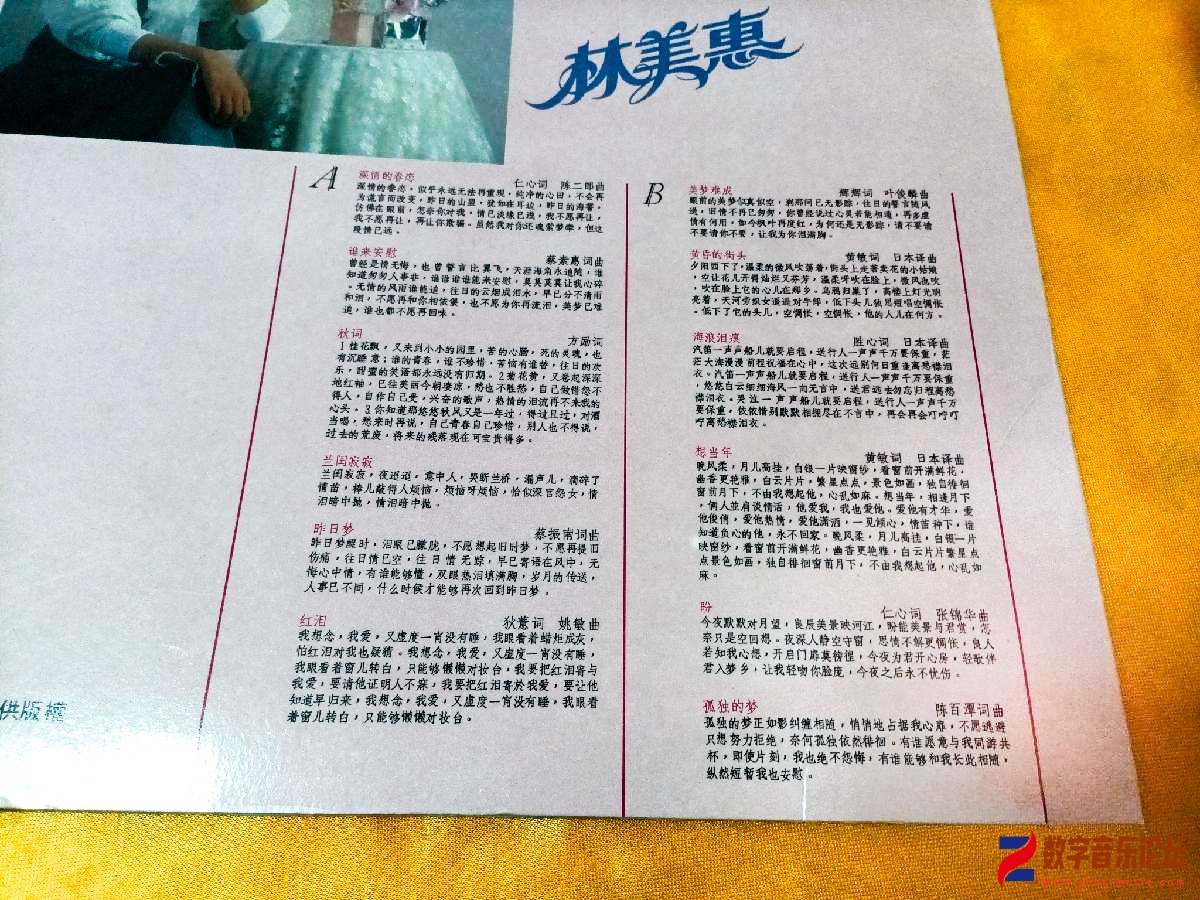 林美惠
A
深情的眷恋
仁心词 陈二郎曲
深情的眷恋,似乎永远无法再重现,纯净的心田,不会再
为谎言而改变,昨日的山盟,犹如在耳边,昨日的海誓,
仿佛在眼前,怎奈你对我,情已淡缘已浅,我不愿再让,
我不愿再让,再让你欺骗。虽然我对你还魂萦梦牵,但这
段情已远。
谁来安慰
蔡素惠词曲
曾经是情无悔,也曾誓言比翼飞,天涯海角永追随,谁
知道匆匆人事非,谁谁谁谁能来安慰,莫莫莫莫让我心碎
。无情的风雨谁能追,往日的云烟成泪水,早已分不清雨
和泪,不愿再和你相依偎,也不愿为你再流泪,美梦已难
追,谁也都不愿再回味。
秋词
方励词
1桂花飘,又来到小小的园里,苦的心肠,死的灵魂,也
有沉睡意;谁的青春,谁不珍惜,苦恼有谁替,往日的欢
乐,甜蜜的笑语都永远没有归期。2菊花黄,又卷起深深
地红袖,已往美丽今朝凄凉,愁也不胜愁,自己做错怨不
得人,自作自己受,兴奋的歌声,热情的泪流再不来我的
心头。3你知道那悠悠秋风又是一年过,得过且过,对酒
当唱,愁来时再说,自己青春自己珍惜,别人也不得说,
过去的荒废,将来的残落现在可宝贵得多。
兰闺寂寂
兰闺寂寂,夜迢迢,意中人,哭断兰桥,漏声儿,滴碎了
情苗,棒儿敲得人烦恼,烦恼呀烦恼,恰似深宫怨女,情
泪暗中抛,情泪暗中抛。
昨日梦
蔡振南词曲
昨日梦醒时,泪眼已朦胧,不愿想起旧时梦,不愿再提旧
伤痛,往日情已空,往日情无踪,早已寄语在风中,无
悔心中情,有谁能够懂,双眼热泪填满胸,岁月的传送,
人事已不同,什么时候才能够再次回到昨日梦。
红泪
狄薏词 姚敏曲
我想念,我爱,又虚度一宵没有睡,我眼看着蜡炬成灰,
怕红泪对我也疑猜。我想念,我爱,又虚度一宵没有睡,
我眼看着窗儿转白,只能够懒懒对妆台,我要把红泪寄与
我爱,要请他证明人不寐,我要把红泪寄於我爱,要让他
知道早归来,我想念,我爱,又虚度一宵没有睡,我眼看
着窗儿转白,只能够懒懒对妆台。
B
美梦难成
辉辉词 叶俊麟曲
眼前的美梦似真似空,刹那间已无影踪,往日的誓言随风
送,旧情不再已匆匆,你曾经说过心灵若能相通,再多虚
情有何用,如今枫叶再度红,为何还是无影踪,请不要请
不要请你不要,让我为你泪满胸。
黄昏的街头
黄敏词 日本译曲
夕阳西下了,温柔的微风吹荡着,街头上走着卖花的小姑娘
,空让花儿开得灿烂又芬芳,温柔呀吹在脸上,微风也吹
,吹在脸上它的心儿在那乡。乌鸦归巢了,高楼上灯光明
亮着,天河旁织女遥遥对牛郎,低下头儿独思短唱空惆怅
。低下了它的头儿,空惆怅,空惆怅,他的人儿在何方。
海浪泪痕
胜心词 日本译曲
汽笛一声声船儿就要启程,送行人一声声千万要保重,茫
茫大海漫漫前程祝福在心中,这次远别何日重逢离愁襟泪
衣。汽笛一声声船儿就要启程,送行人一声声千万要保重
,悠悠白云细细海风一向无言中,送君远去勿忘归程离愁
襟泪衣。哭泣一声声船儿就要启程,送行人一声声千万
要保重,依依惜别默默相拥尽在不言中,再会再会叮咛叮
咛离愁襟泪衣。
想当年
黄敏词 日本译曲
晚风柔,月儿高挂,白银一片映窗纱,看窗前开满鲜花,
幽香更艳雅,白云片片,繁星点点,景色如画,独自徘徊
窗前月下,不由我想起他,心乱如麻。想当年,相逢月下
,俩人并肩谈情话,他爱我,我也爱他。爱他有才华,爱
他俊俏,爱他热情,爱他潇洒,一见倾心,情苗种下,谁
知道负心的他,永不回家。晚风柔,月儿高挂,白银一片
映窗纱,看窗前开满鲜花,幽香更艳雅,白云片片繁星点
点景色如画,独自徘徊窗前月下,不由我想起他,心乱如
麻。
盼
仁心词 张锦华曲
今夜默默对月望,良辰美景映河江,盼能美景与君赏,怎
奈只是空回想。夜深人静空守窗,思情不解更惆怅,良人
若知我心想,开启门扉莫徬徨,今夜为君开心房,轻歌伴
君入梦乡,让我轻吻你脸庞,今夜之后永不忧伤。
孤独的梦
陈百潭词曲
孤独的梦正如影纠缠相随,悄悄地占据我心扉,不愿逃避
只想努力拒绝,奈何孤独依然徘徊。有谁愿意与我同游共
杯,即使片刻,我也绝不怨悔,有谁能够和我长此相随,
纵然短暂我也安慰。
供版權
数字音乐论坛